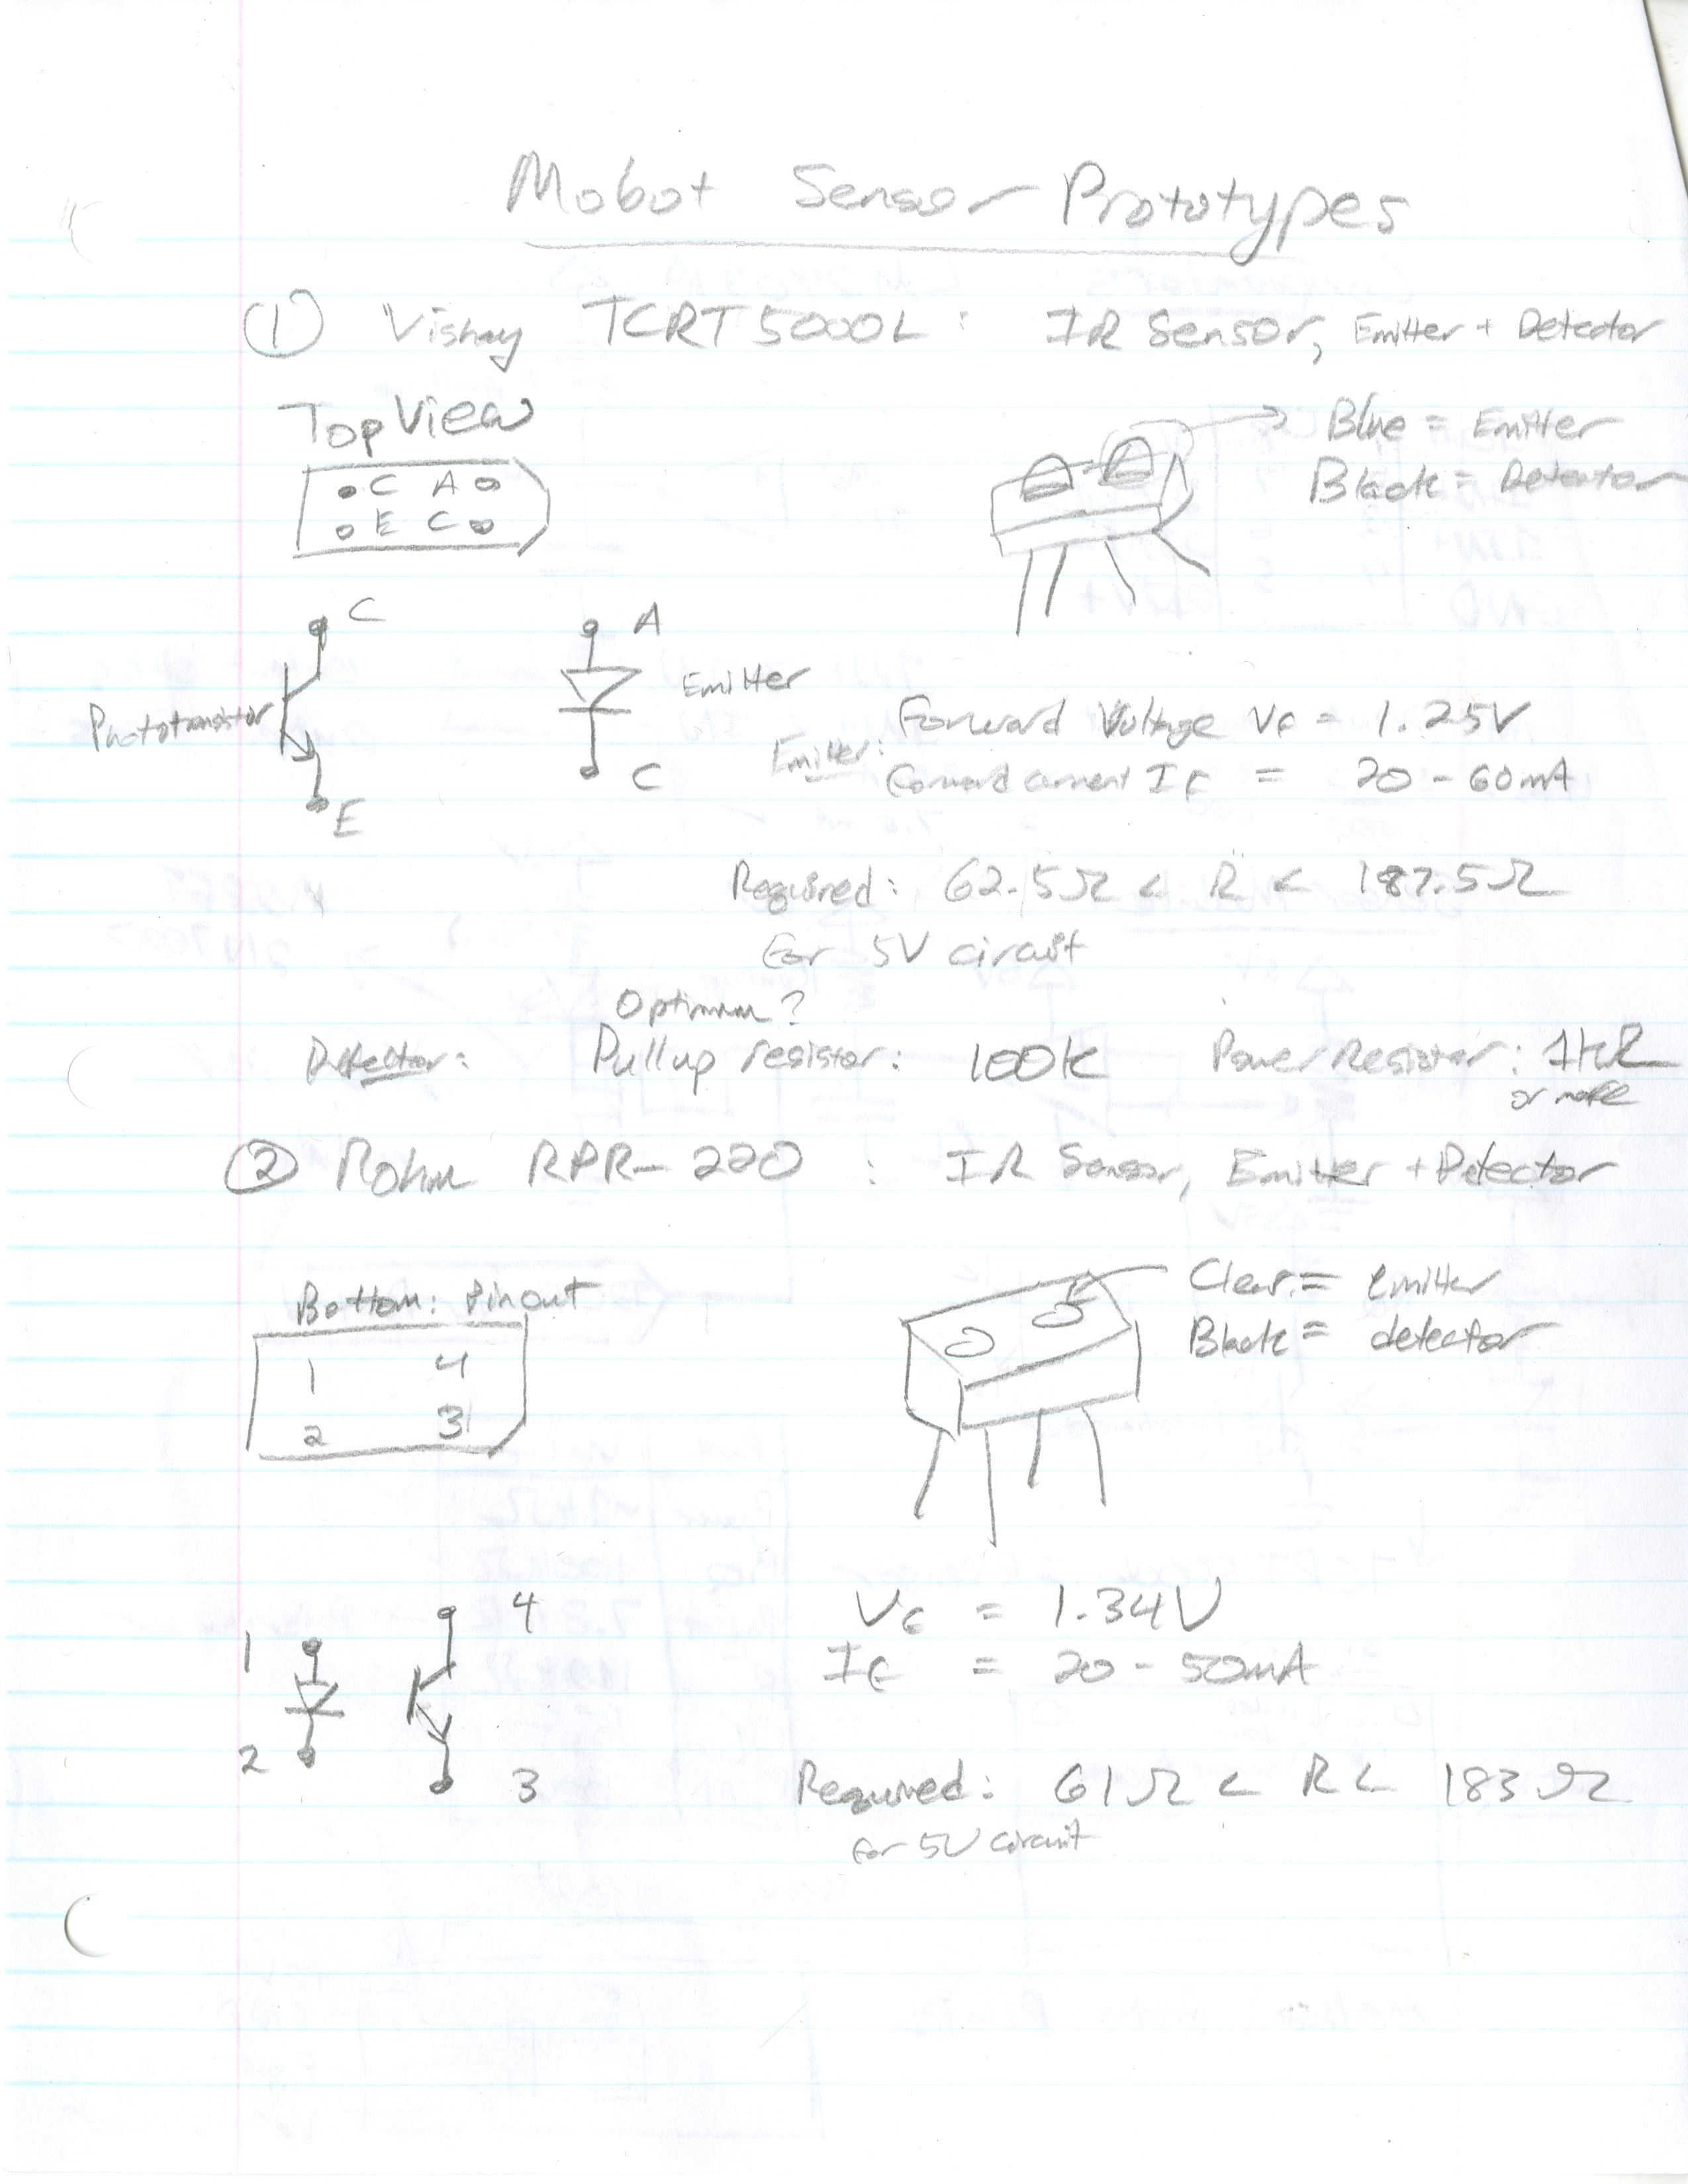 Mobot Sensor Prototypes
① Vishay TCRT5000L : IR Sensor, Emitter + Detector
Top View
C A
E C
Blue = Emitter
Black = Detector
C
A
Phototransistor
Emitter
E
C
Emitter: Forward Voltage VF = 1.25V
Forward current IF = 20 - 60mA
Required: 62.5Ω < R < 187.5Ω
for 5V circuit
Optimum?
Detector: Pullup resistor: 100k Power Resistor: 1kΩ
or more
② Rohm RPR-220 : IR Sensor, Emitter + Detector
Bottom: Pinout
1 4
2 3
Clear = emitter
Black = detector
1
4
2
3
VF = 1.34V
IF = 20 - 50mA
Required: 61Ω < R < 183Ω
for 5V circuit